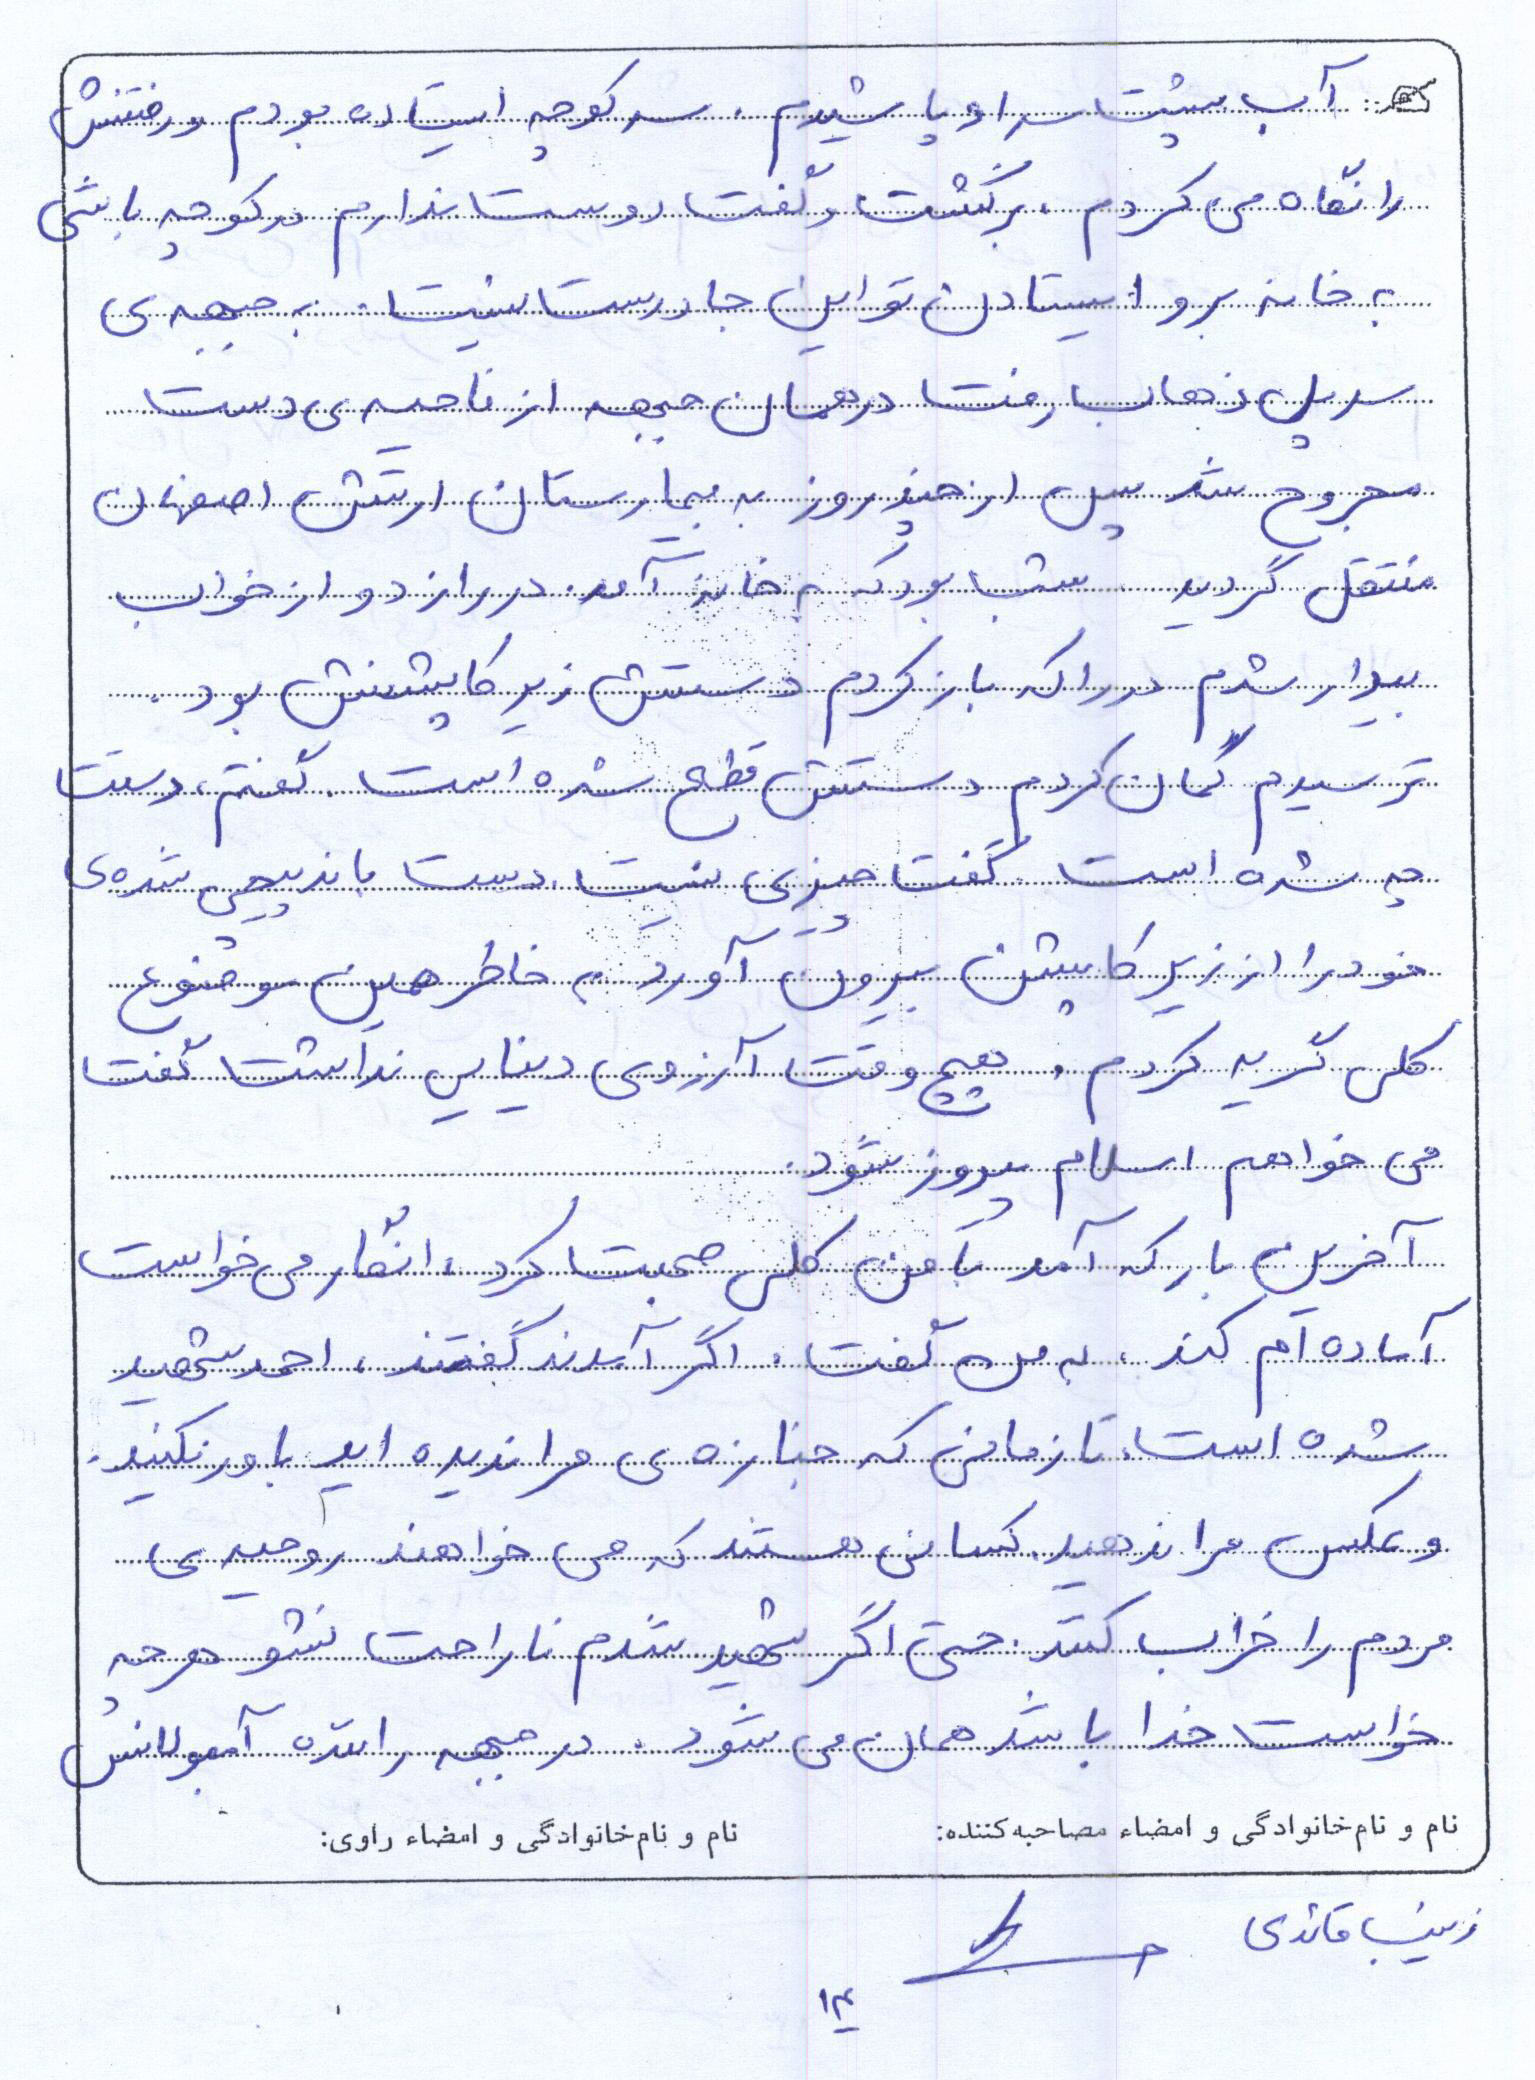 آب پشت سر او پاشیدم. سر کوچه ایستاده بودم و رفتنش
را نگاه می کردم. برگشت و گفت دوست ندارم در کوچه باشی
به خانه برو ایستادن تو این جا درست نیست. به جبهه ی
سرپل ذهاب رفت در همان جبهه از ناحیه ی دست
مجروح شد پس از چند روز به بیمارستان ارتش اصفهان
منتقل گردید شب بود که به خانه آمد. در را زد و از خواب
بیدار شدم در را که باز کردم دستش زیر کاپشنش بود.
ترسیدم گمان کردم دستش قطع شده است. گفتم، دستت
چه شده است. گفت چیزی نیست. دست باندپیچی شده ی
خود را از زیر کاپشن بیرون آورد به خاطر همین موضوع
کلی گریه کردم. هیچ وقت آرزوی دنیایی نداشت گفت
می خواهم اسلام پیروز شود.
آخرین بار که آمد با من کلی صحبت کرد، انگار می خواست
آماده ام کند، به من گفت. اگر آمدند گفتند، احمد شهید
شده است، تا زمانی که جنازه ی مرا ندیده اید باور نکنید.
و عکس مرا ندهید. کسانی هستند که می خواهند روحیه ی
مردم را خراب کنند. حتی اگر شهید شدم ناراحت نشو هر چه
خواست خدا باشد همان می شود. در جبهه راننده آمبولانس
نام و نام‌خانوادگی و امضاء مصاحبه‌کننده: نام و نام‌خانوادگی و امضاء راوی:
زینب قائدی
۱۴